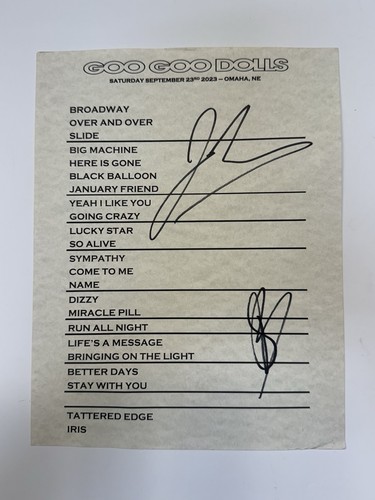 GOO GOO DOLLS
SATURDAY SEPTEMBER 23RD 2023 – OMAHA, NE
BROADWAY
OVER AND OVER
SLIDE
BIG MACHINE
HERE IS GONE
BLACK BALLOON
JANUARY FRIEND
YEAH I LIKE YOU
GOING CRAZY
LUCKY STAR
SO ALIVE
SYMPATHY
COME TO ME
NAME
DIZZY
MIRACLE PILL
RUN ALL NIGHT
LIFE'S A MESSAGE
BRINGING ON THE LIGHT
BETTER DAYS
STAY WITH YOU
TATTERED EDGE
IRIS